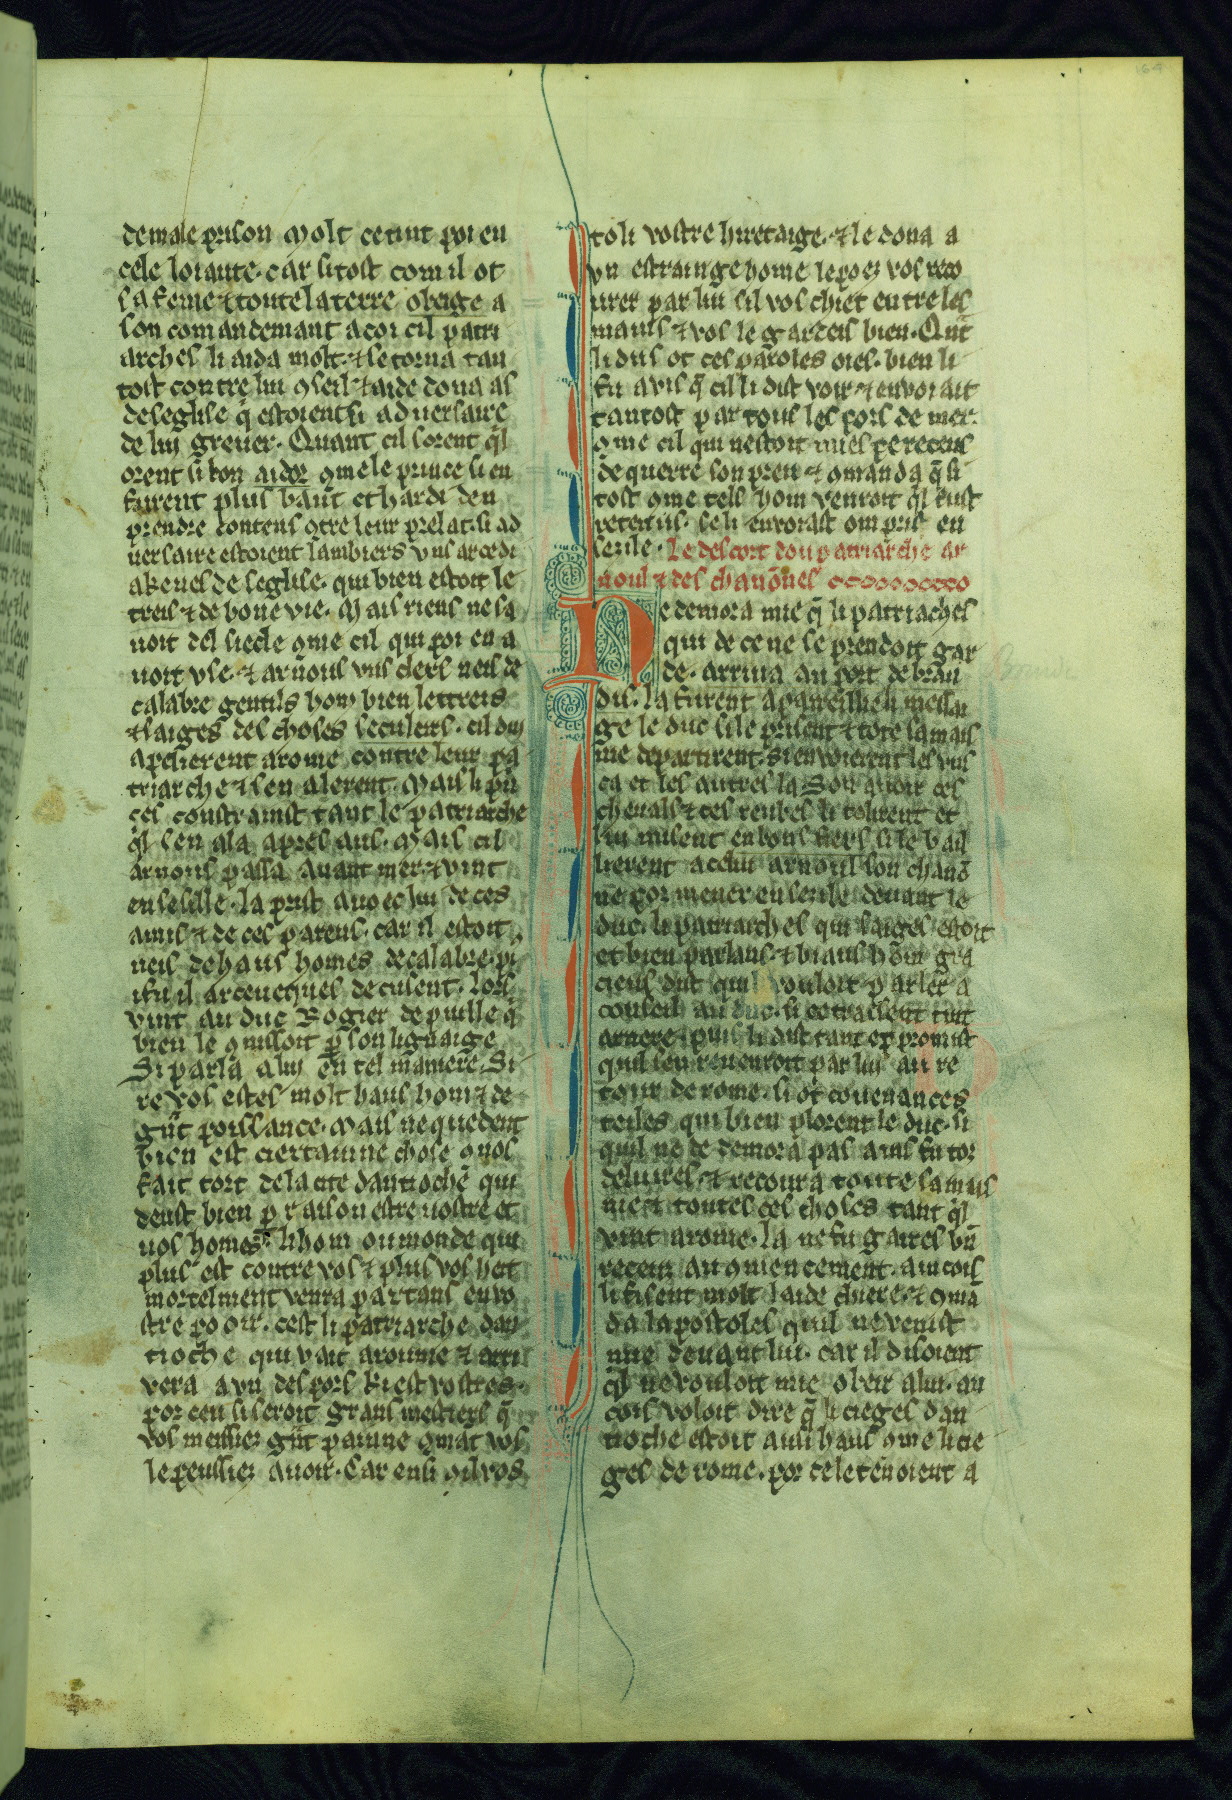 de male prison Molt ce tint poi en
cele loiaute. car si tost com il ot
sa feme ⁊ toute la terre obeige a
son comandemant a coi cil patri
arches li aida molt. ⁊ se torna tan
tost contre lui ꝯseil ⁊ aide dona as
de seglise q̄ estoient si aduersaire
de lui greuer. Quant cil sorent q̄l
orent si bon aidor ꝯme le prince si en
furent plus baut et hardi den
prendre contens ꝯtre leur prelat. si ad
uersaire estoient lambiers vns arcedi
akenes de seglise. qui bien estoit le
treis ⁊ de bone vie. Mais riens ne sa
uoit del siecle ꝯme cil qui poi en a
uoit vse. ⁊ arnous vns clers neis de
calabre gentils hom bien lettreis
⁊ saiges des choses seculeirs. cil dui
apelerent a rome contre leur pa
triarche ⁊ sen alerent. Mais li prī
ces constrainst tant le patriarche
q̄l sen ala apres aus. Mais cil
arnous passa auant mer. ⁊ vint
en sesille. la prist auoec lui de ces
amis ⁊ de ces parens. car il estoit
neis de haus homes de calabre. pi
ifu il arceueques de cusent. Lors
vint au duc Rogier de puille q̄
bien le ꝯnissoit ꝑ son lignaige
Si parla a lui en tel maniere. Si
re vos estes molt haus hom ⁊ de
gn̄t poissance. Mais ne quedent
bien est ciertainne chose ꝯ vos
fait tort de la cite dantioche qui
deust bien ꝑ raison estre uostre et
uos homes. li hom ou monde qui
plus est contre vos ⁊ plus vos heit
mortelment venra par tans en vo
stre pooir. cest li patriarche dan
tioche qui vait a roume ⁊ arri
vera a vn des pors ki est vostres.
por ceu si seroit grans mestiers q̄
vos meissiez gn̄t painne ꝯmāt vos
le peussiez auoir. Car ensi ꝯ il vos
toli vostre hiretaige. ⁊ le dona a
vn estrainge home le poez vos reco
urer par lui sil vos chiet entre les
mains ⁊ vos le gardeis bien. Qn̄t
li dus ot ces paroles oies. bien li
fu avis q̄ cil li dist voir ⁊ envoiait
tantost par tous les pors de mer.
ꝯme cil qui nestoit mies perecens
de querre son preu ⁊ ꝯmanda q̄ si
tost ꝯme tels hom venroit q̄l fust
retenus. se li envoiast om pris en
sezile. Le descort dou patriarche ar
noul ⁊ des chanōnes
Ne demora mie q̄ li patriaches
qui de ce ne se prendoit gar
de. arriua au port de bran
dis. la furent apareillie li messa
ge le duc si le prisent ⁊ tote sa mais
nie departirent. si enuoierent les vns
ca et les autres la Son auoir ces
cheuals ⁊ ces reubes li tolirent et
lui misent en bons fiers si le bail
lierent a celui arnoul son chanō
ne por mener en sezile deuant le
duc. li patriarches qui saiges estoit
et bien parlans. ⁊ biaus hom gra
cieus dist quil vouloit parler a
conseil au duc. si ce traisent tuit
arriere puis li dist tant et promist
quil sen reuenroit par lui au re
tour de rome. si ot couenances
teiles qui bien plorent le duc. si
quil ne de demora pas ains fu tor
deluires. ⁊ recoura toute sa mais
nie ⁊ toutes ces choses tant q̄l
vint a rome. la ne fu gaires bn̄
receuz au ꝯmencement. aincois
li fisent molt laide chiere. ⁊ ꝯmā
da lapostoles quil ne venist
mie deuant lui. car il disoient
q̄l ne vouloit mie obeir a lui. an
cois voloit dire q̄ li cieges dan
tioche estoit ausi haus ꝯme li cie
ges de rome. por ce le tenoient a